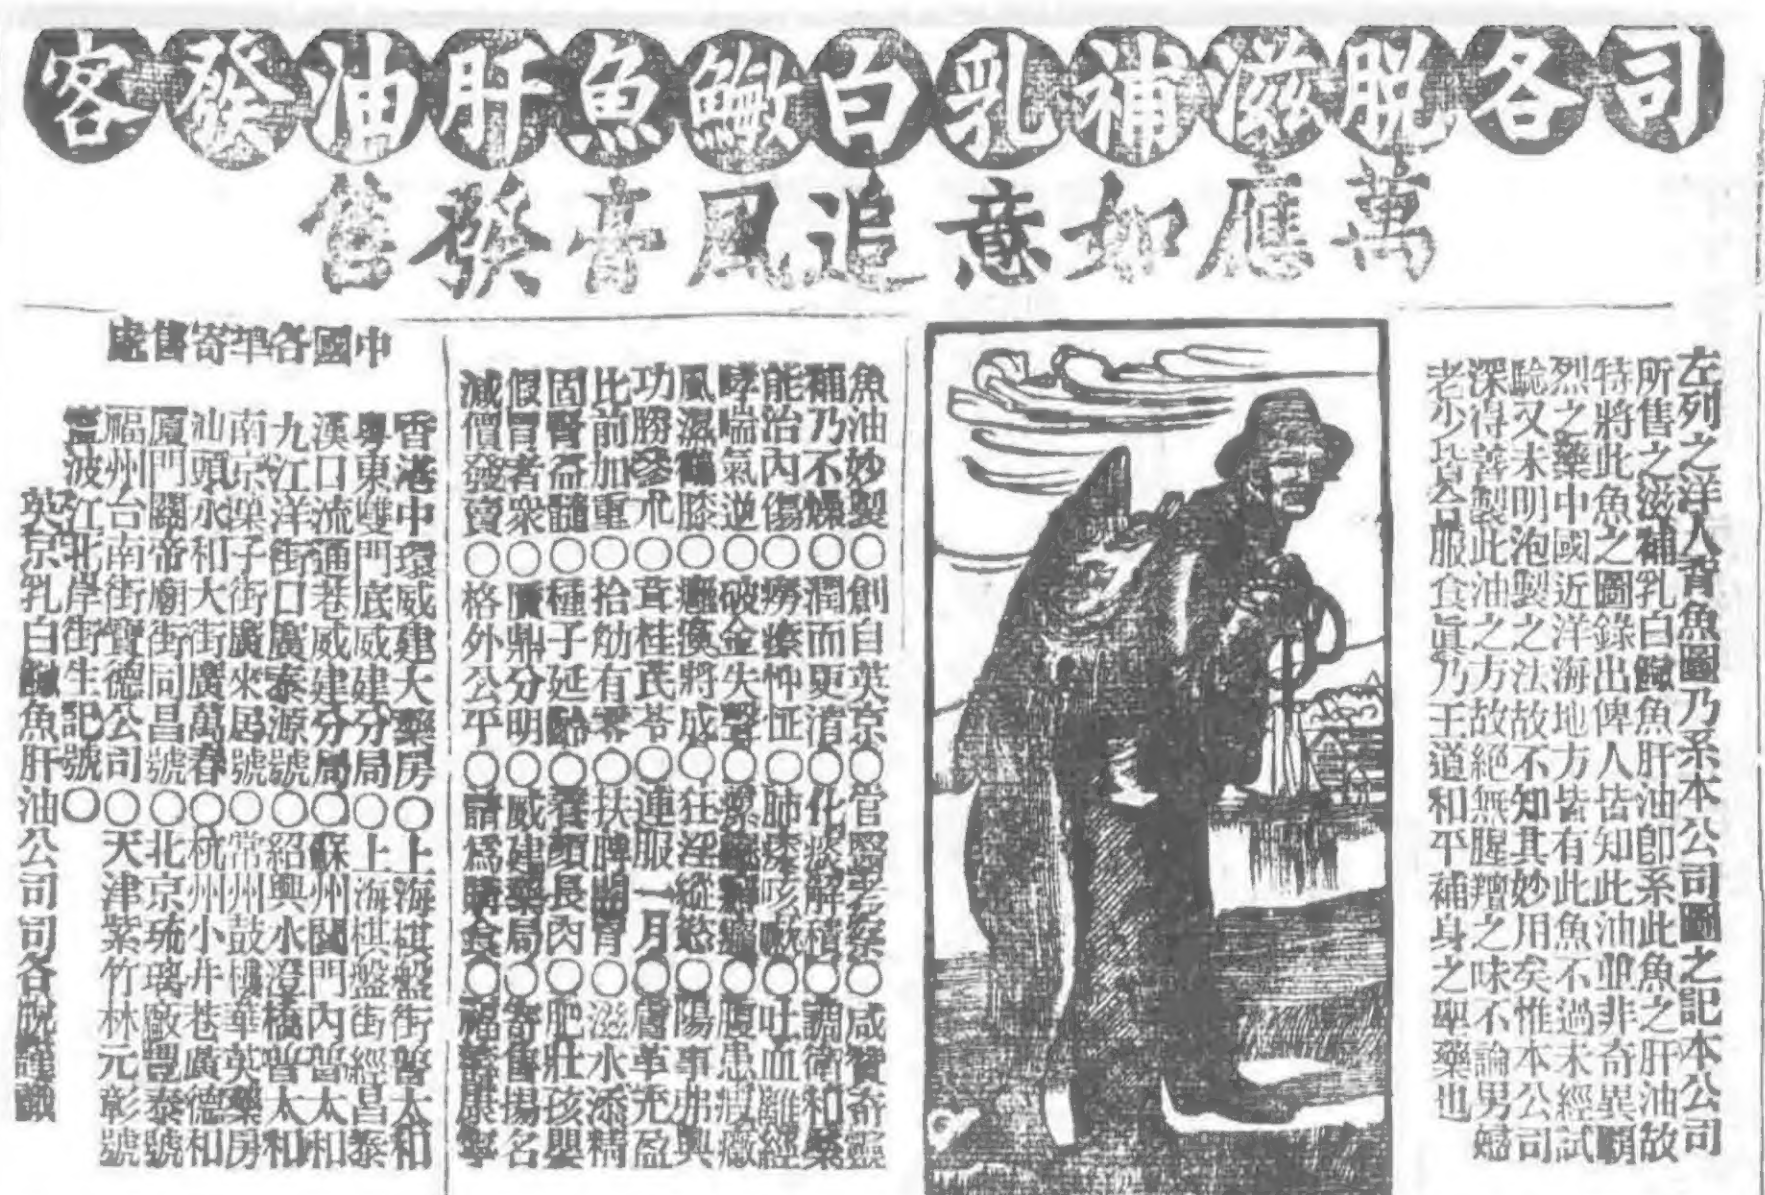 司各脱滋補乳白鰵魚肝油發客
萬應如意追風膏發售
左列之洋人背魚圖乃系本公司圖之記本公司
所售之滋補乳白鰵魚肝油即系此魚之肝油故
特將此魚之圖錄出俾人皆知此油並非奇異霸
烈之藥中國近洋海地方皆有此魚不過未經試
驗又未明泡製之法故不知其妙用矣惟本公司
深得善製此油之方故絕無腥羶之味不論男婦
老少皆合服食眞乃王道和平補身之聖藥也
魚油妙製○創自英京○官醫考察○咸賛奇靈
補乃不燥○潤而更淯○化痰解積○調衛和榮
能治內傷○癆瘵忡怔○肺痿咳嗽○吐血離經
哮喘氣逆○破金失聲○瘰癧○腹患瘕癥
風濕鶴膝○癱瘓將成○狂淫縱慾○陽事弗興
功勝參朮○茸桂芪苓○連服一月○膚革充盈
比前加重○拾觔有零○扶脾開胃○滋水添精
固腎益髓○種子延齡○養顏長肉○肥壯孩嬰
假冒者衆○贋鼎分明○威建藥局○寄售揚名
減價發賣○格外公平○請爲購食○福壽康寧
中國各埠寄售處
香港中環威建大藥房○上海棋盤街普太和
粵東雙門底威建分局○上海棋盤街經昌泰
漢口流通巷威建分局○蘇州閶門內普太和
九江洋街口廣泰源號○紹興水澄橋普太和
南京菓子街廣來居號○常州鼓樓華英藥房
汕頭永和大街廣萬春○杭州小井巷廣德和
廈門關帝廟街同昌號○北京琉璃廠豐泰號
福州台南街寶德公司○天津紫竹林元彰號
寧波江北岸街生記號○
英京乳白鰵魚肝油公司司各脫謹識